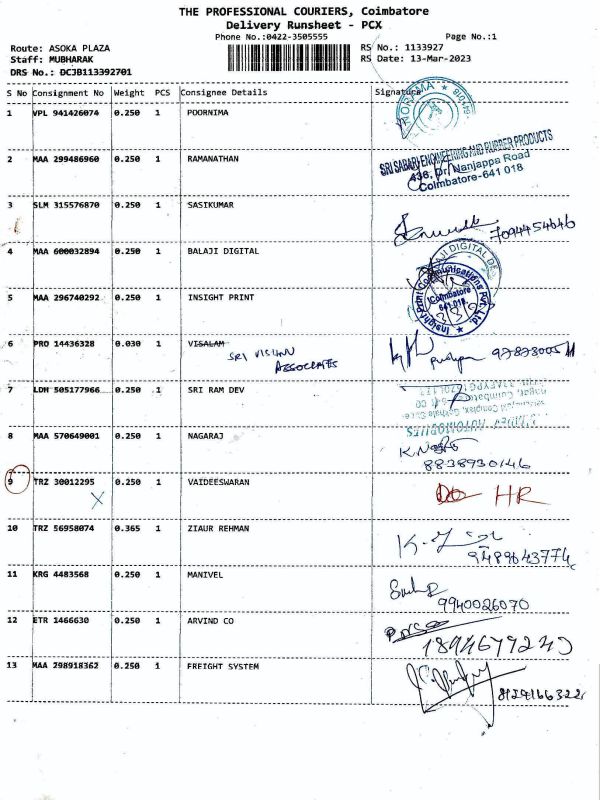 THE PROFESSIONAL COURIERS, Coimbatore
Delivery Runsheet - PCX
Phone No.:0422-3505555 Page No.:1
Route: ASOKA PLAZA RS No.: 1133927
Staff: MUBHARAK RS Date: 13-Mar-2023
DRS No.: DCJB113392701
S No Consignment No Weight PCS Consignee Details Signature
1 VPL 941426074 0.250 1 POORNIMA
2 MAA 299486960 0.250 1 RAMANATHAN
SRI SABARI ENGINEERING AND RUBBER PRODUCTS
436, Dr. Nanjappa Road
Coimbatore-641 018
3 SLM 315576870 0.250 1 SASIKUMAR
7094454646
4 MAA 600032894 0.250 1 BALAJI DIGITAL
BALAJI DIGITAL
5 MAA 296740292 0.250 1 INSIGHT PRINT
Insight Print Communications Pvt. Ltd.
Coimbatore
641 018
6 PRO 14436328 0.030 1 VISALAM
SRI VISHNU
ASSOCIATES
7 LDH 505177966 0.250 1 SRI RAM DEV
8 MAA 570649001 0.250 1 NAGARAJ
8838930146
9 TRZ 30012295 0.250 1 VAIDEESWARAN
X HR
10 TRZ 56958074 0.365 1 ZIAUR REHMAN
9489643774
11 KRG 4483568 0.250 1 MANIVEL
9940026070
12 ETR 1466630 0.250 1 ARVIND CO
13 MAA 298918362 0.250 1 FREIGHT SYSTEM
8124166322